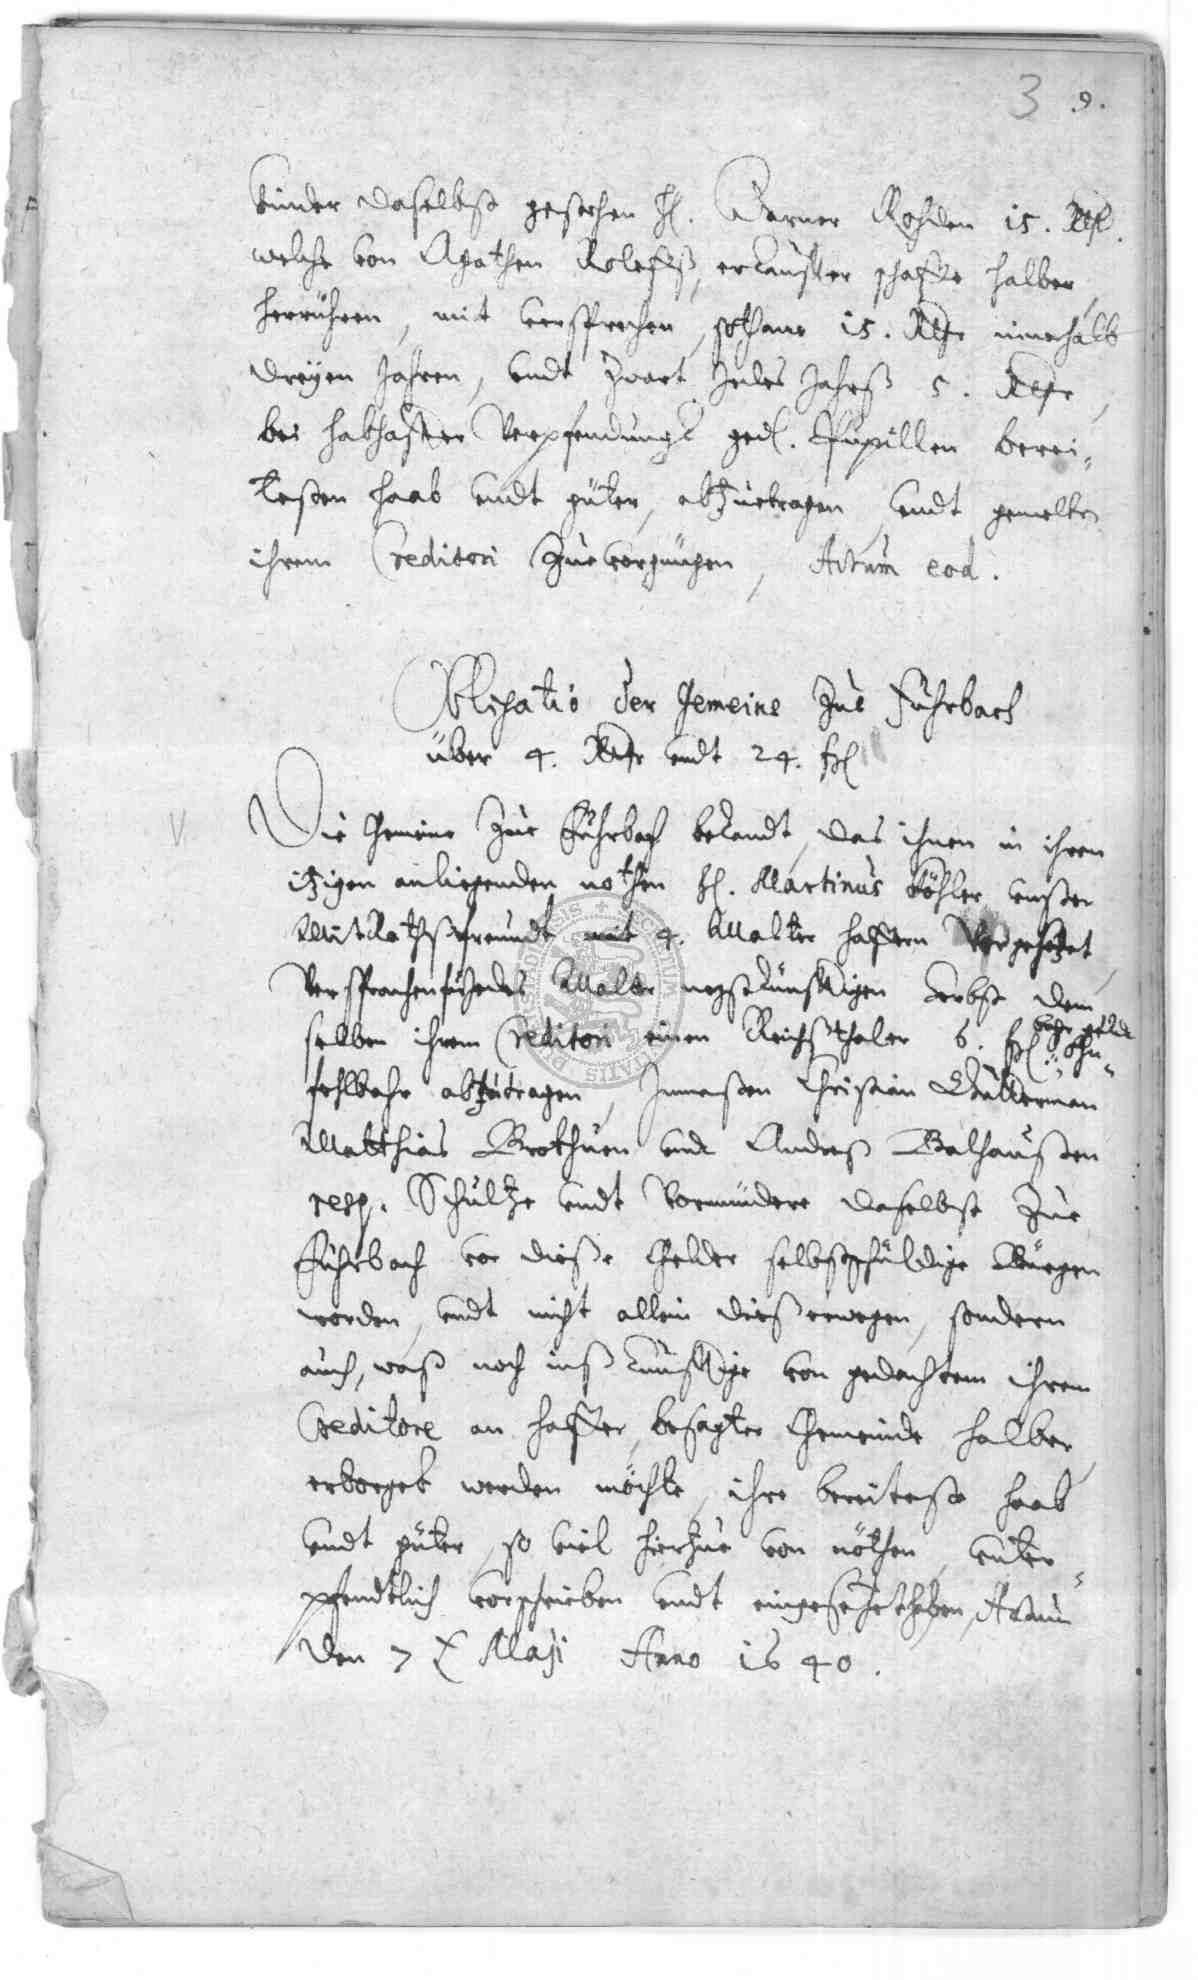 3 9.
kinder daselbst gestehen H. Werner Rohden 15. Rthl.
welche von Agathen Roleffs, erkaufter schaffe halber
herrühren, mit versprechen, sothane 15. Rthr innerhalb
dreyen Jahren, undt zwart Jedes Jahrß 5. Rthr,
bei habhaffter Verpfendungk ged. Pupillen berei-
testen haab undt güter, abzuetragen undt gemelten
ihrem Creditori zue vergnügen, Actum eod.
Obligatio der Gemeine Zue Fuhrbach
über 4. Rthr undt 24. ßl
Die Gemeine Zue Fuhrbach bekandt, das ihnen in ihren
itzigen anliegenden nothen H. Martinus Köhler unser
MitRathsfreundt mit 4. Malter haffern Vorgesetzet,
Versprochen Jedes Malter negstkünfftigen Herbst dem
selben ihrem Creditori einen Reichsthaler 6. ßl bahr geldt ohn-
fehlbahr abzutragen, Inmaßen Christian
Matthias Grothuen undt Andreas Balhaußen
resp. Schultze undt Vormündere daselbst Zue
Fuhrbach vor dieße Gelder selbstschuldige Bürgen
worden, undt nicht allein dießerwegen, sondern
auch, waß noch inß künfftige von gedachtem ihrem
Creditore an haffer, besagter Gemeinde halber,
erborget werden möchte, ihre bereiteste haab
undt güter, so viel hierzue von nöthen, unter-
pfendtlich verschrieben undt eingesetzet haben, Actum
den 7 Maji Anno 1640.